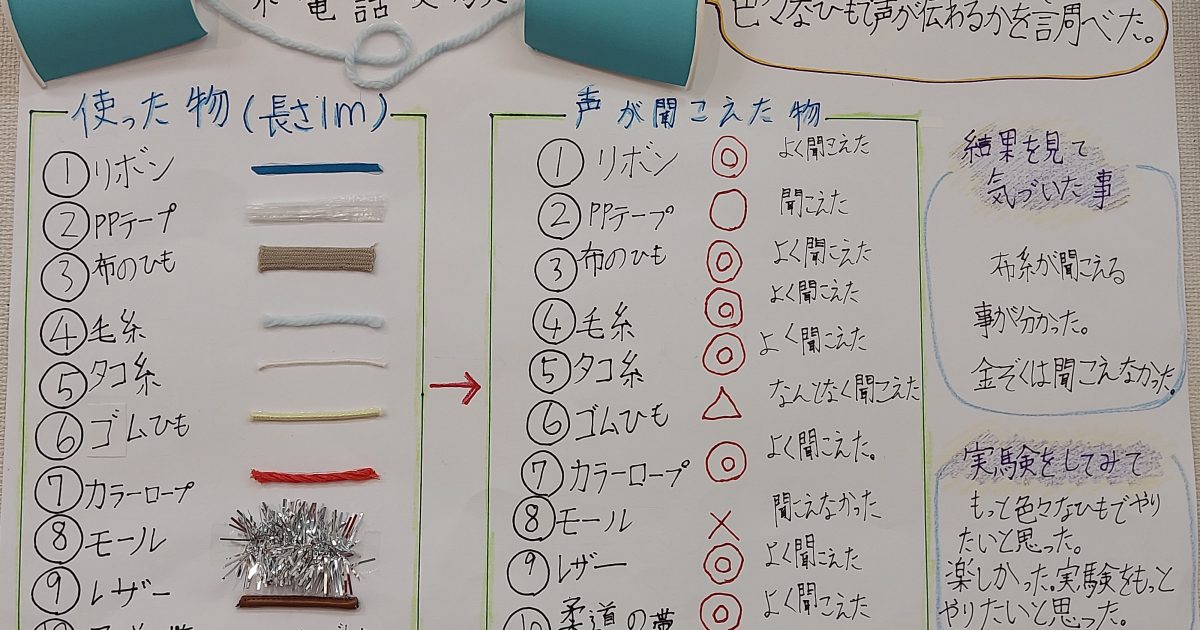 電話
色々なひもで声が伝わるかを調べた。
使った物(長さ1m)
①リボン
②PPテープ
③布のひも
④毛糸
⑤タコ糸
⑥ゴムひも
⑦カラーロープ
⑧モール
⑨レザー
声が聞こえた物
①リボン ◎ よく聞こえた
②PPテープ ○ 聞こえた
③布のひも ◎ よく聞こえた
④毛糸 ◎ よく聞こえた
⑤タコ糸 ◎ よく聞こえた
⑥ゴムひも △ なんとなく聞こえた
⑦カラーロープ ◎ よく聞こえた。
⑧モール × 聞こえなかった
⑨レザー ◎ よく聞こえた
⑩柔道の帯 ◎ よく聞こえた
結果を見て
気づいた事
布糸が聞こえる
事が分かった。
金ぞくは聞こえなかった。
実験をしてみて
もっと色々なひもでやり
たいと思った。
楽しかった。実験をもっと
やりたいと思った。